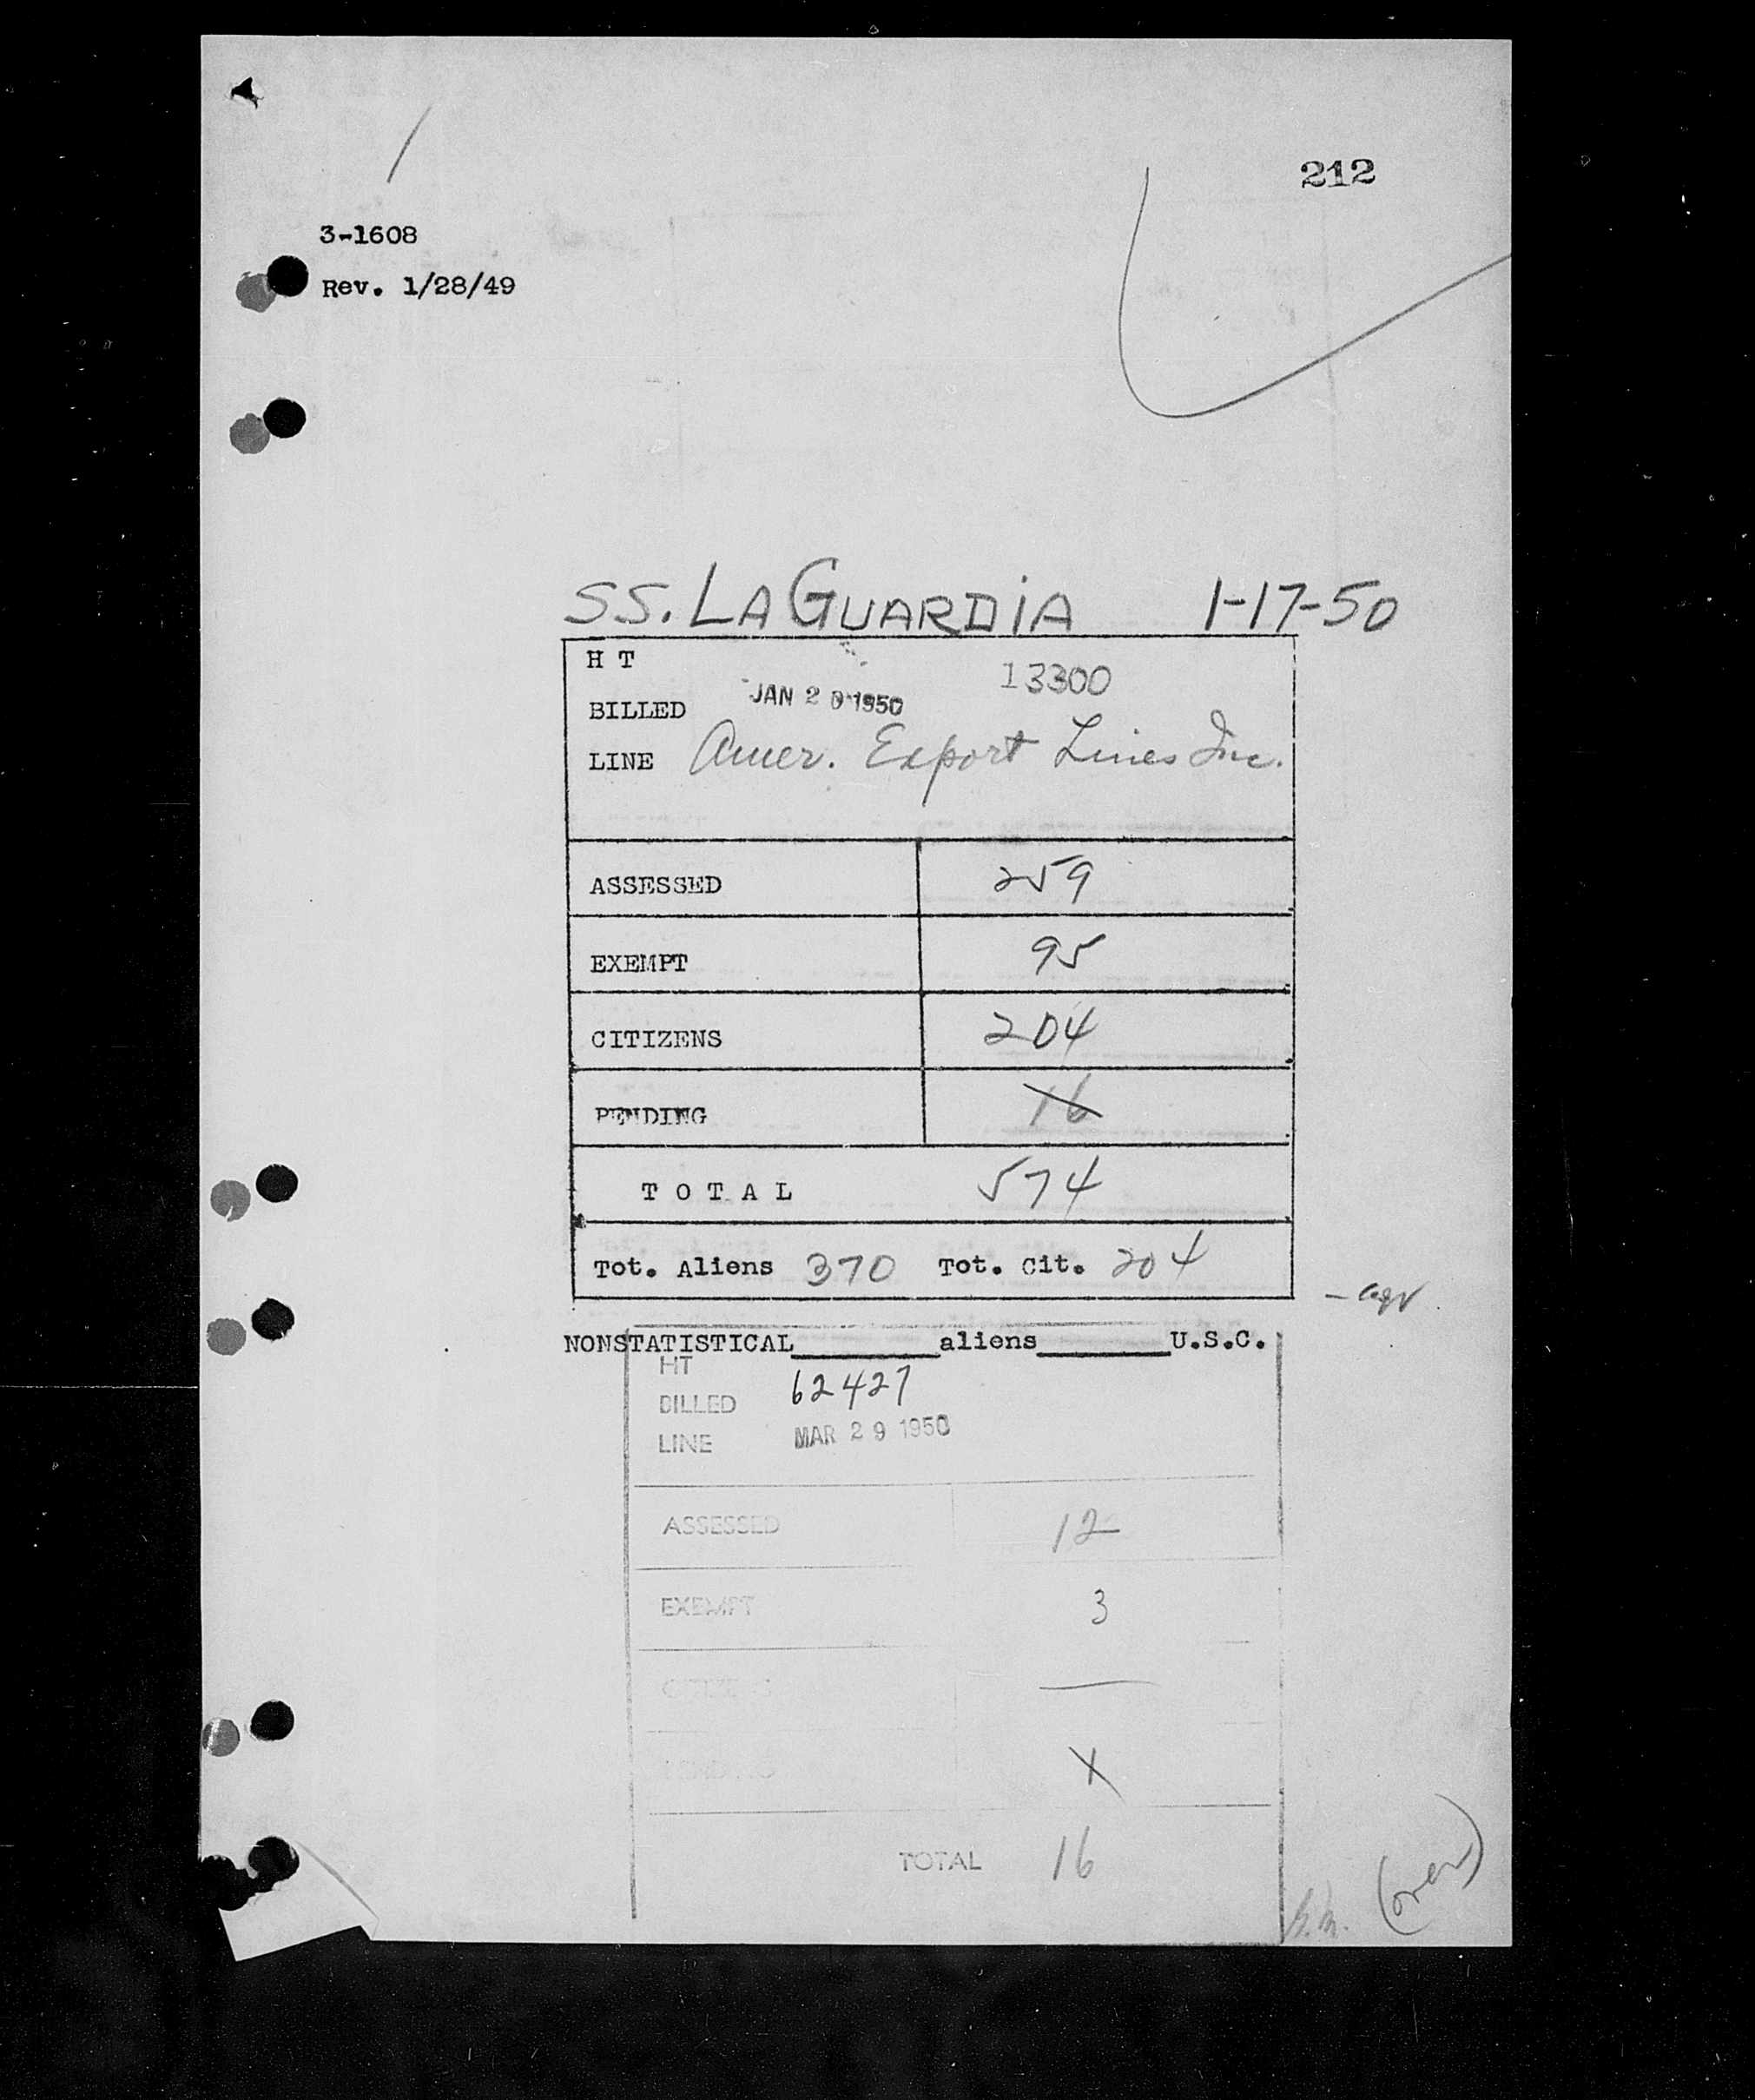 212
3-1608
Rev. 1/28/49
SS. LA GUARDIA 1-17-50
H T
13300
BILLED JAN 20 1950
LINE Amer. Export Lines Inc.
ASSESSED 259
EXEMPT 95
CITIZENS 204
PENDING 16
TOTAL 574
Tot. Aliens 370 Tot. Cit. 204
NONSTATISTICAL________aliens________U.S.C.
HT
BILLED 62427
LINE MAR 29 1950
ASSESSED 12
EXEMPT 3
CITIZENS —
PENDING X
TOTAL 16
(over)